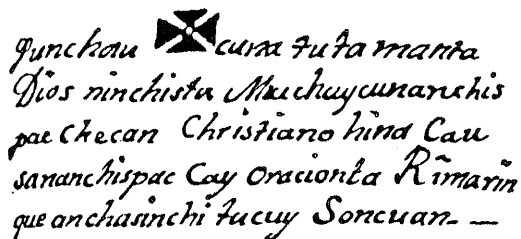 Punchau cuna tutamanta
Dios ninchista Muchuycunanchis
pac Checan Christiano hina Cau
sananchispac Cay Oracionta Rimarin
que anchasinchi tucuy Soncuan